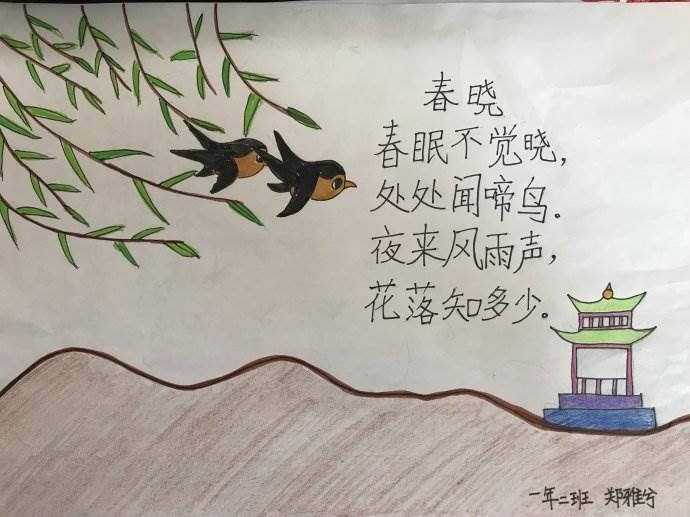 春晓
春眠不觉晓，
处处闻啼鸟。
夜来风雨声，
花落知多少。
一年二班 郑雅兮